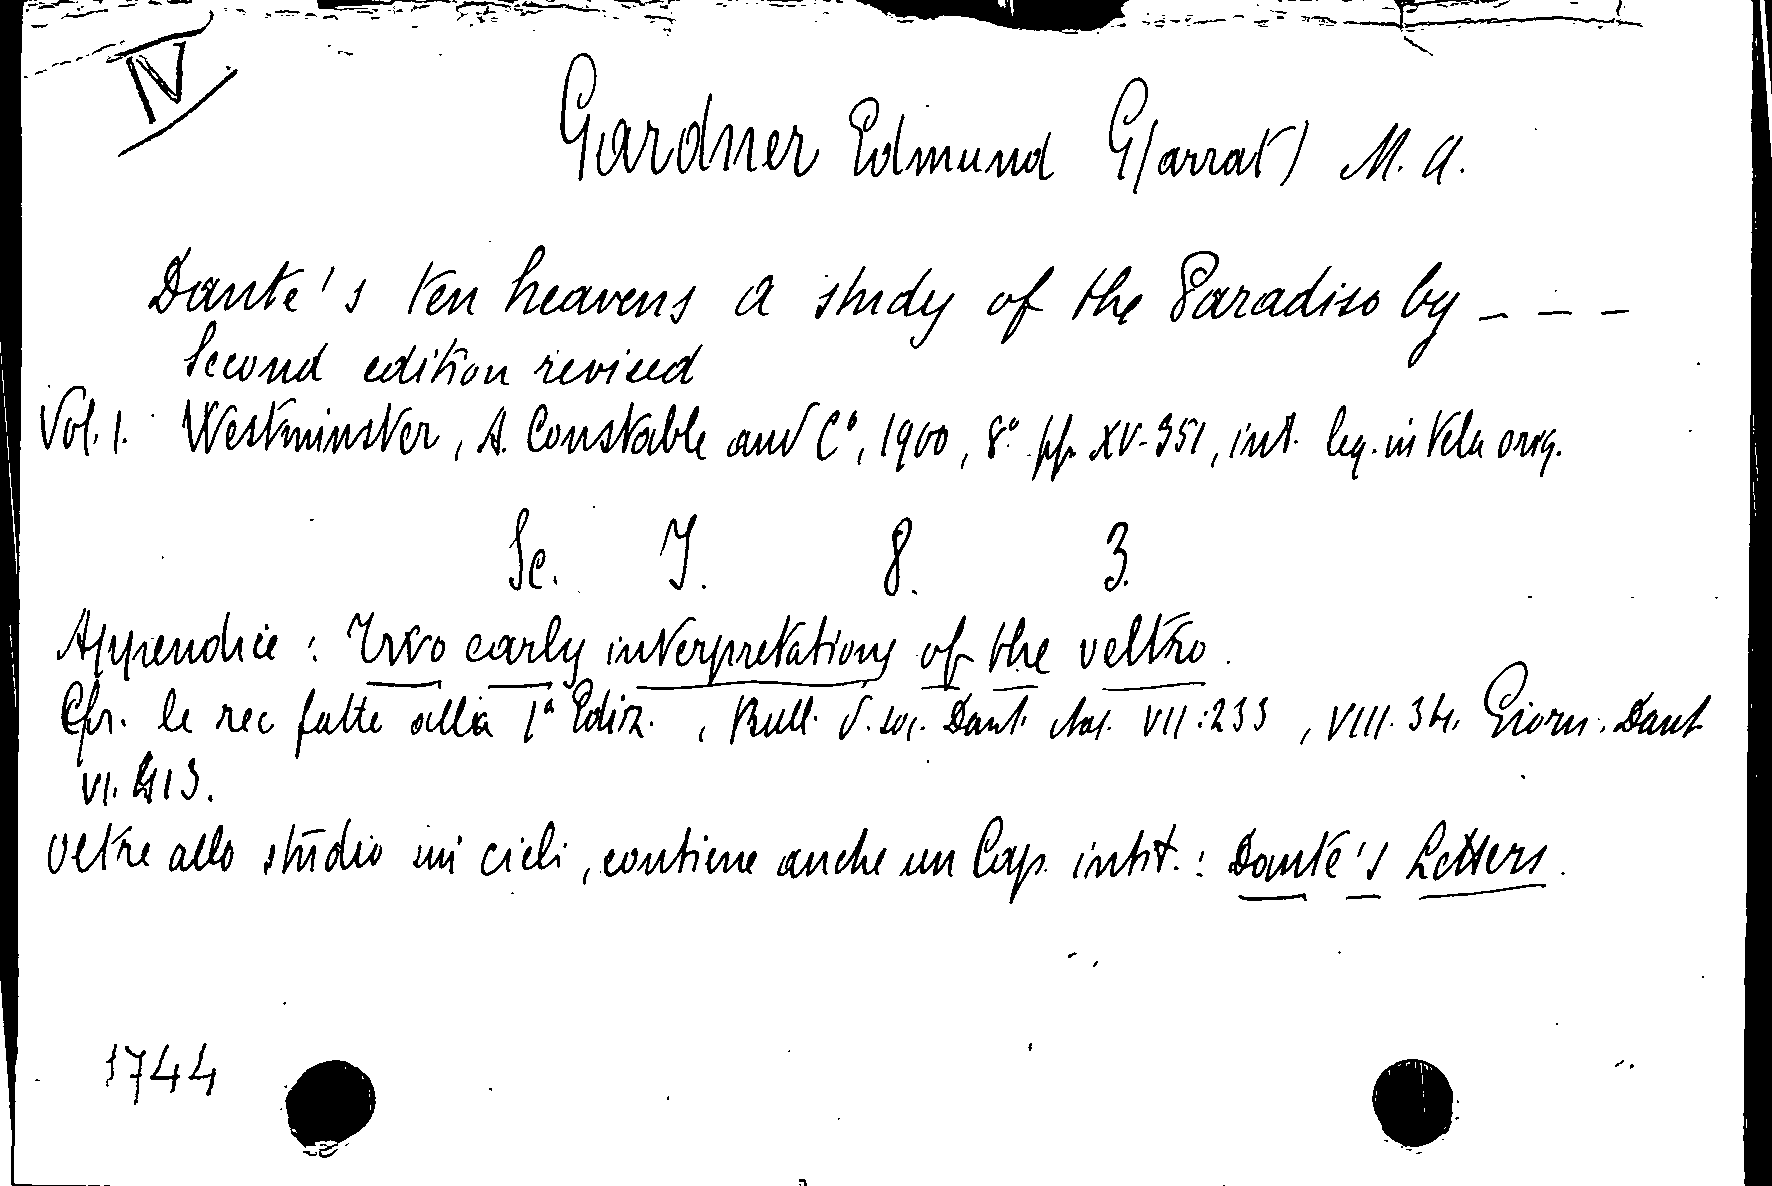 IV
Gardner Edmund G(arrat) M. A.
Dante's ten heavens a study of the Paradiso by _ _ _
Second edition revised
Vol. 1. Westminster, A. Constable and C°, 1900, 8° pp. XV-351, int. leg. in tela orig.
Sc. J. 8. 3.
Appendice : Two early interpretations of the veltro.
Cfr. le rec fatte alla 1ª Ediz. , Bull. d. soc. Dant. VII : 233 , VIII. Giorn. Dant
VI.
Oltre allo studio sui cieli, contiene anche un Cap. intit. : Dante's Letters.
1744